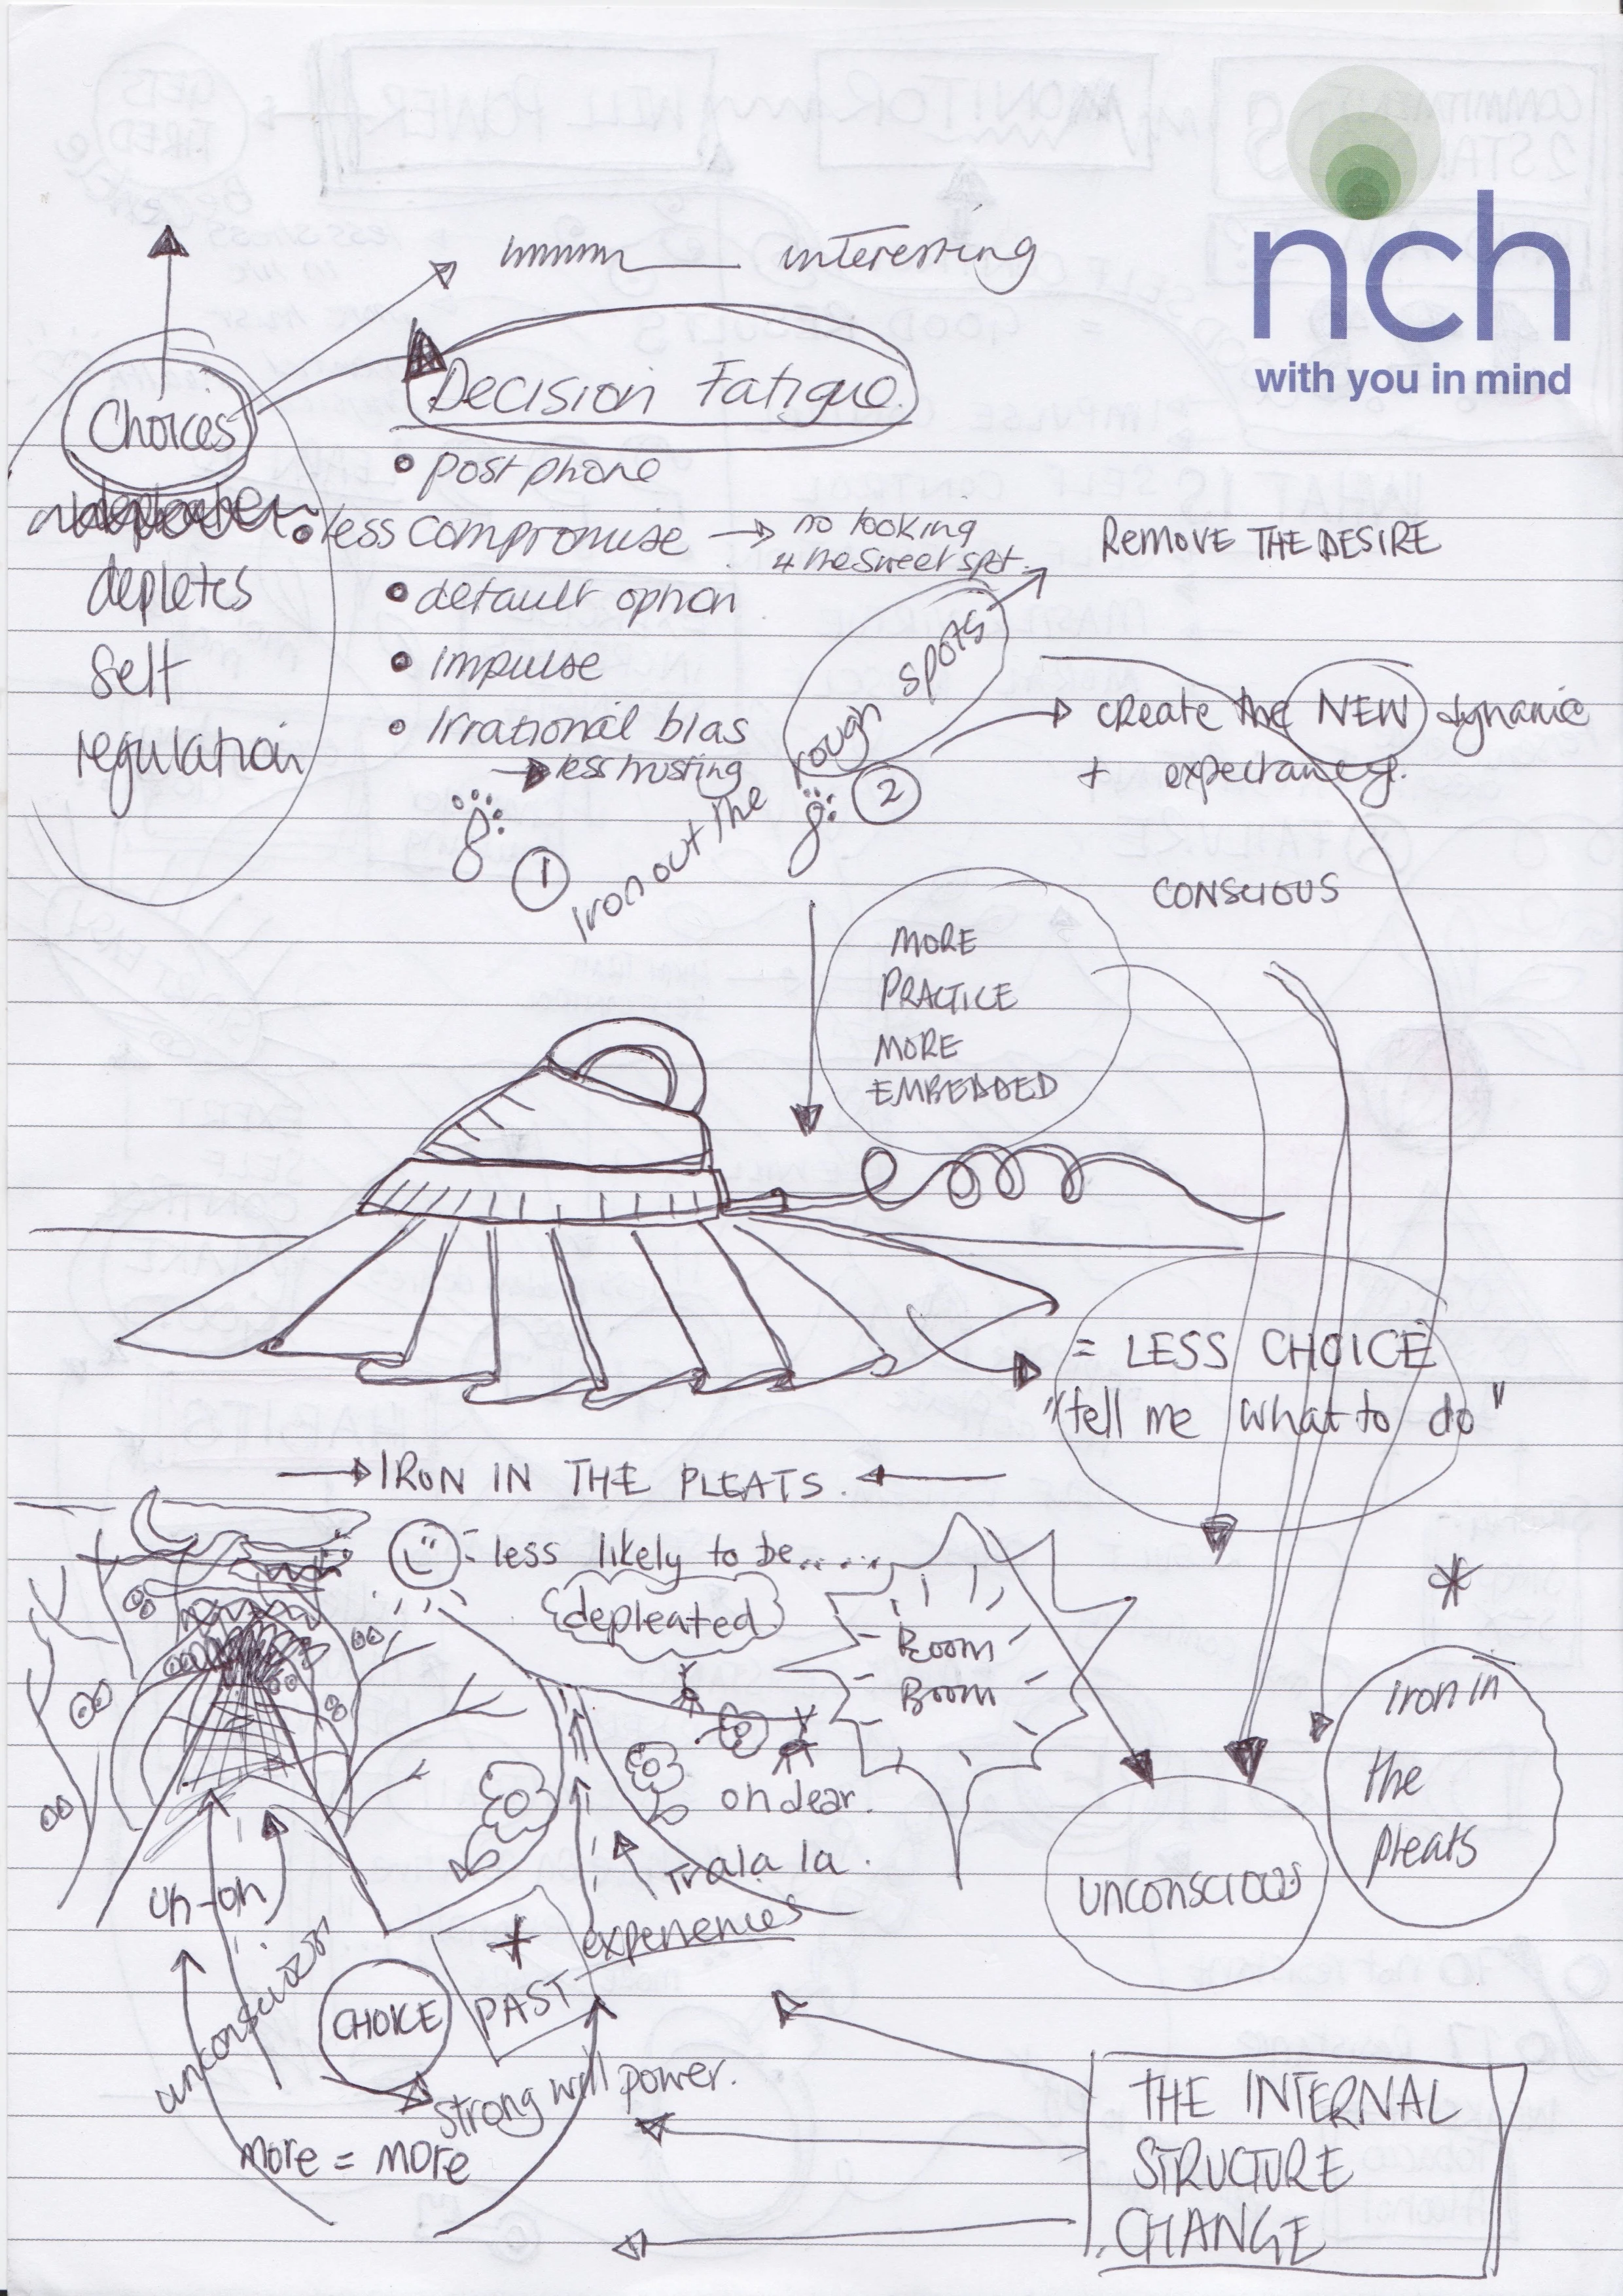 nch
with you in mind
hmmmm interesting
Choices
depletes
self
regulation
Decision Fatigue.
• postphone
• less compromise → no looking
4 the sweet spot.
• default option
• impulse
• Irrational bias
→ less trusting
1
Iron out the rough spots
2
REMOVE THE DESIRE
create the NEW dynamic
+ expectancy.
CONSCIOUS
MORE
PRACTICE
MORE
EMBEDDED
= LESS CHOICE
"tell me what to do"
→ IRON IN THE PLEATS. ←
less likely to be.....
depleated
Boom
Boom
oh dear.
Trala la.
uh-oh
unconscious
CHOICE
* PAST experiences
strong will power.
more = more
UNCONSCIOUS
*
iron in
the
pleats
THE INTERNAL
STRUCTURE
CHANGE